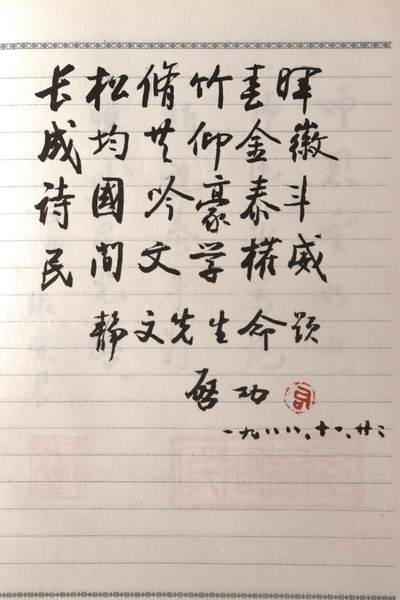 长松脩竹春晖
成均共仰金徽
诗國吟豪泰斗
民间文学權威
静文先生命题
启功
一九八八、十一、廿二